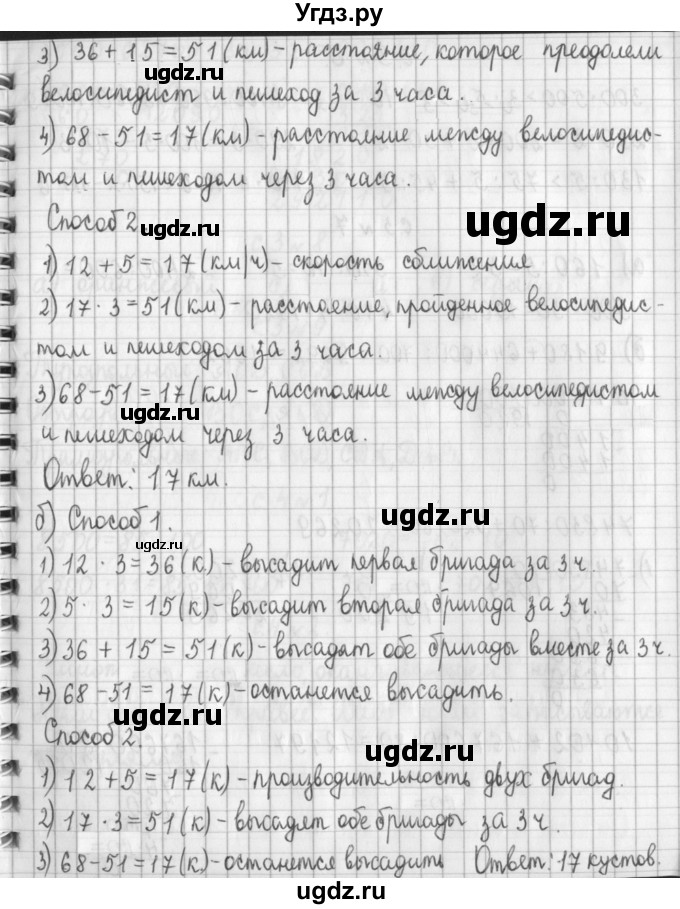 Угдз.ру
3) 36 + 15 = 51 (км) - расстояние, которое преодолели
ugdz.ru
велосипедист и пешеход за 3 часа.
ugdz.ru
4) 68 - 51 = 17 (км) - расстояние между велосипедис-
том и пешеходом через 3 часа.
Способ 2
ugdz.ru
ugdz.ru
1) 12 + 5 = 17 (км/ч) - скорость сближения
2) 17 · 3 = 51 (км) - расстояние, пройденное велосипедис-
том и пешеходом за 3 часа.
ugdz.ru
3) 68 - 51 = 17 (км) - расстояние между велосипедистом
ugdz.ru
и пешеходом через 3 часа.
Ответ: 17 км.
б) Способ 1.
ugdz.ru
ugdz.ru
1) 12 · 3 = 36 (к.) - высадит первая бригада за 3 ч.
2) 5 · 3 = 15 (к) - высадит вторая бригада за 3 ч.
ugdz.ru
3) 36 + 15 = 51 (к) - высадят обе бригады вместе за 3 ч.
4) 68 - 51 = 17 (к) - останется высадить.
ugdz.ru
Способ 2.
ugdz.ru
1) 12 + 5 = 17 (к) - производительность двух бригад.
2) 17 · 3 = 51 (к) - высадят обе бригады за 3 ч.
ugdz.ru
3) 68 - 51 = 17 (к) - останется высадить Ответ: 17 кустов.
ugdz.ru